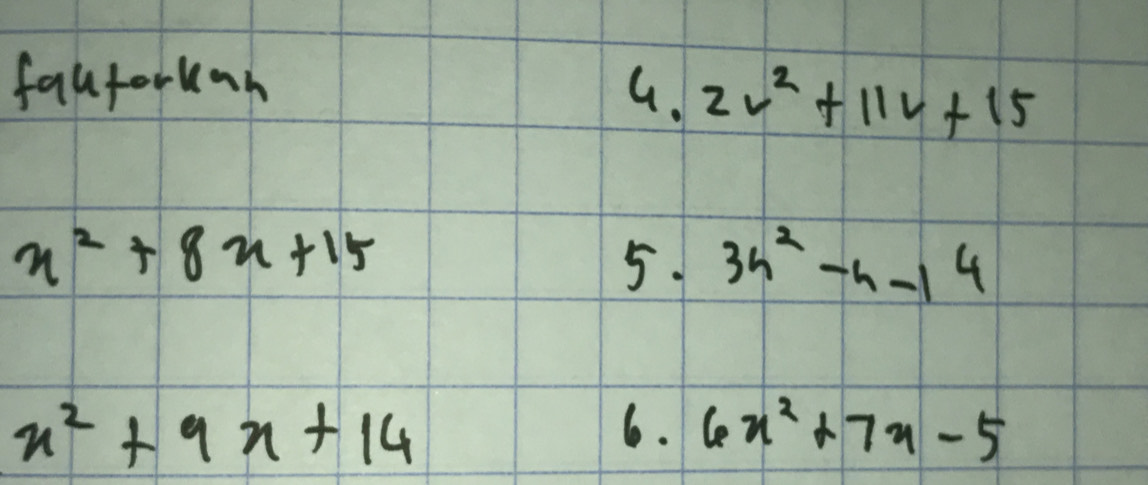 faktorkan
x² + 8x + 15
x² + 9x + 14
4. 2v² + 11v + 15
5. 3h² - h - 14
6. 6x² + 7x - 5